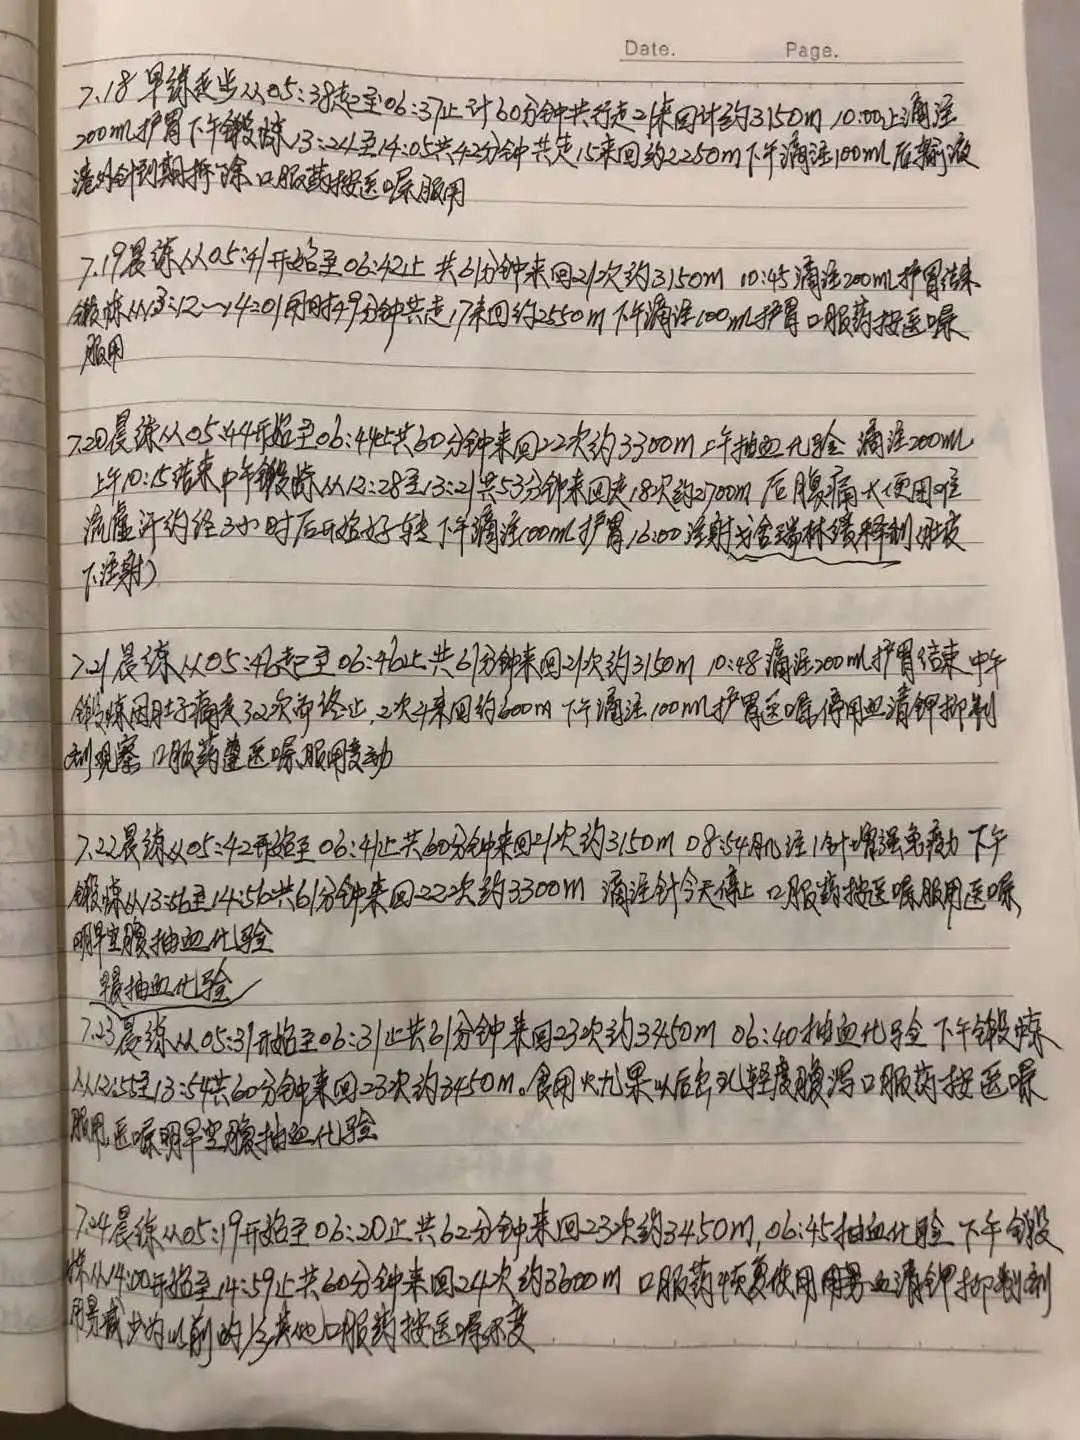 Date. Page.
7.18早练走步从05:38起至06:37止计60分钟共行走21来回计约3150m 10:00止滴注
200mL护胃下午锻炼13:24至14:05共42分钟共走15来回约2250m下午滴注100mL后输液
港外针到期拆除 口服药按医嘱服用
7.19晨练从05:41开始至06:42止 共61分钟来回21次约3150m 10:45滴注200mL护胃结束
锻炼从13:12~14:01用时49分钟共走17来回约2550m下午滴注100mL护胃 口服药按医嘱
服用
7.20晨练从05:44开始至06:44止共60分钟来回22次约3300m上午抽血化验 滴注200mL
上午10:15结束中午锻炼从12:28至13:21共53分钟来回走18次约2700m 后腹痛大便困难
流虚汗约经3小时后开始好转下午滴注100mL护胃16:00注射戈舍瑞林缓释剂(肚皮
下注射)
7.21晨练从05:46起至06:46止共61分钟来回21次约3150m 10:48滴注200mL护胃结束中午
锻炼因肚子痛走322次而终止,2次4来回约600m下午滴注100mL护胃医嘱停用血清钾抑制
剂观察 口服药遵医嘱服用变动
7.22晨练从05:42开始至06:41止共60分钟来回21次约3150m 08:54肌注1针增强免疫力下午
锻炼从13:56至14:56共61分钟来回22次约3300m 滴注针今天停止 口服药按医嘱服用医嘱
明早空腹抽血化验
早晨抽血化验
7.23晨练从05:31开始至06:31止共61分钟来回23次约3450m 06:40抽血化验下午锻炼
从12:55至13:54共60分钟来回23次约3450m。食用火九果以后出现轻度腹泻口服药按医嘱
服用,医嘱明早空腹抽血化验
7.24晨练从05:19开始至06:20止共62分钟来回23次约3450m,06:45抽血化验下午锻
炼从14:00开始至14:59止共60分钟来回24次约3600m 口服药恢复使用用男血清钾抑制剂
用量减少为以前的1/3其他口服药按医嘱不变